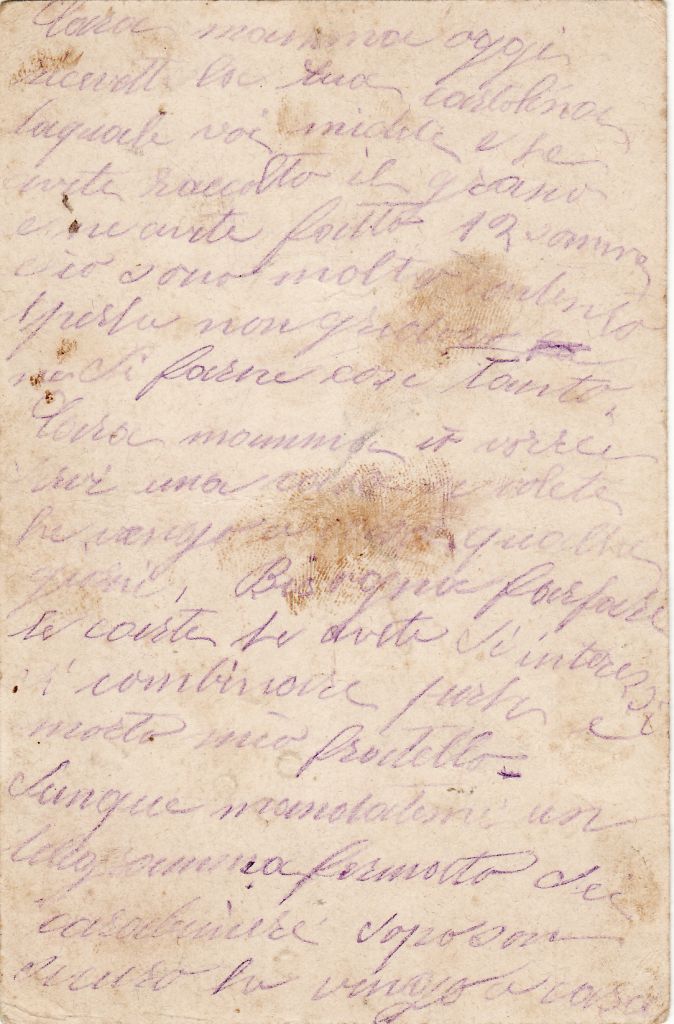 Cara mamma oggi
ricevetti la tua cartolina
laquale voi midite e se
avete raccolto il grano
e ne avete fatto 12 somme
e io sono molto contento
sperla non
di farne cosi tanto.
Cara mamma io vorrei
una cosa se volete
che vengo a casa qualche
giorni, Bisogna far fare
le carte se avete di interessi
di combinare perla e
morto mio fratello
dunque mandatemi un
telegramma fermatto dei
carabinieri dopo son
sicuro che vengo a casa